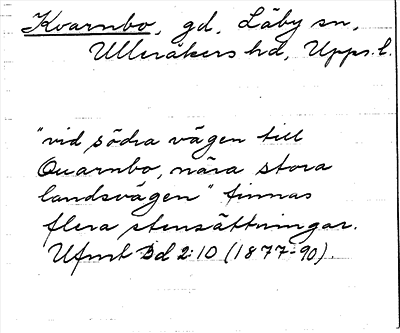 Kvarnbo, gd, Läby sn,
Ulleråkers hd, Upps. l.
"vid södra vägen till
Quarnbo, nära stora
landsvägen" finnas
flera stensättningar.
Ufmt Bd 2:10 (1877-90).